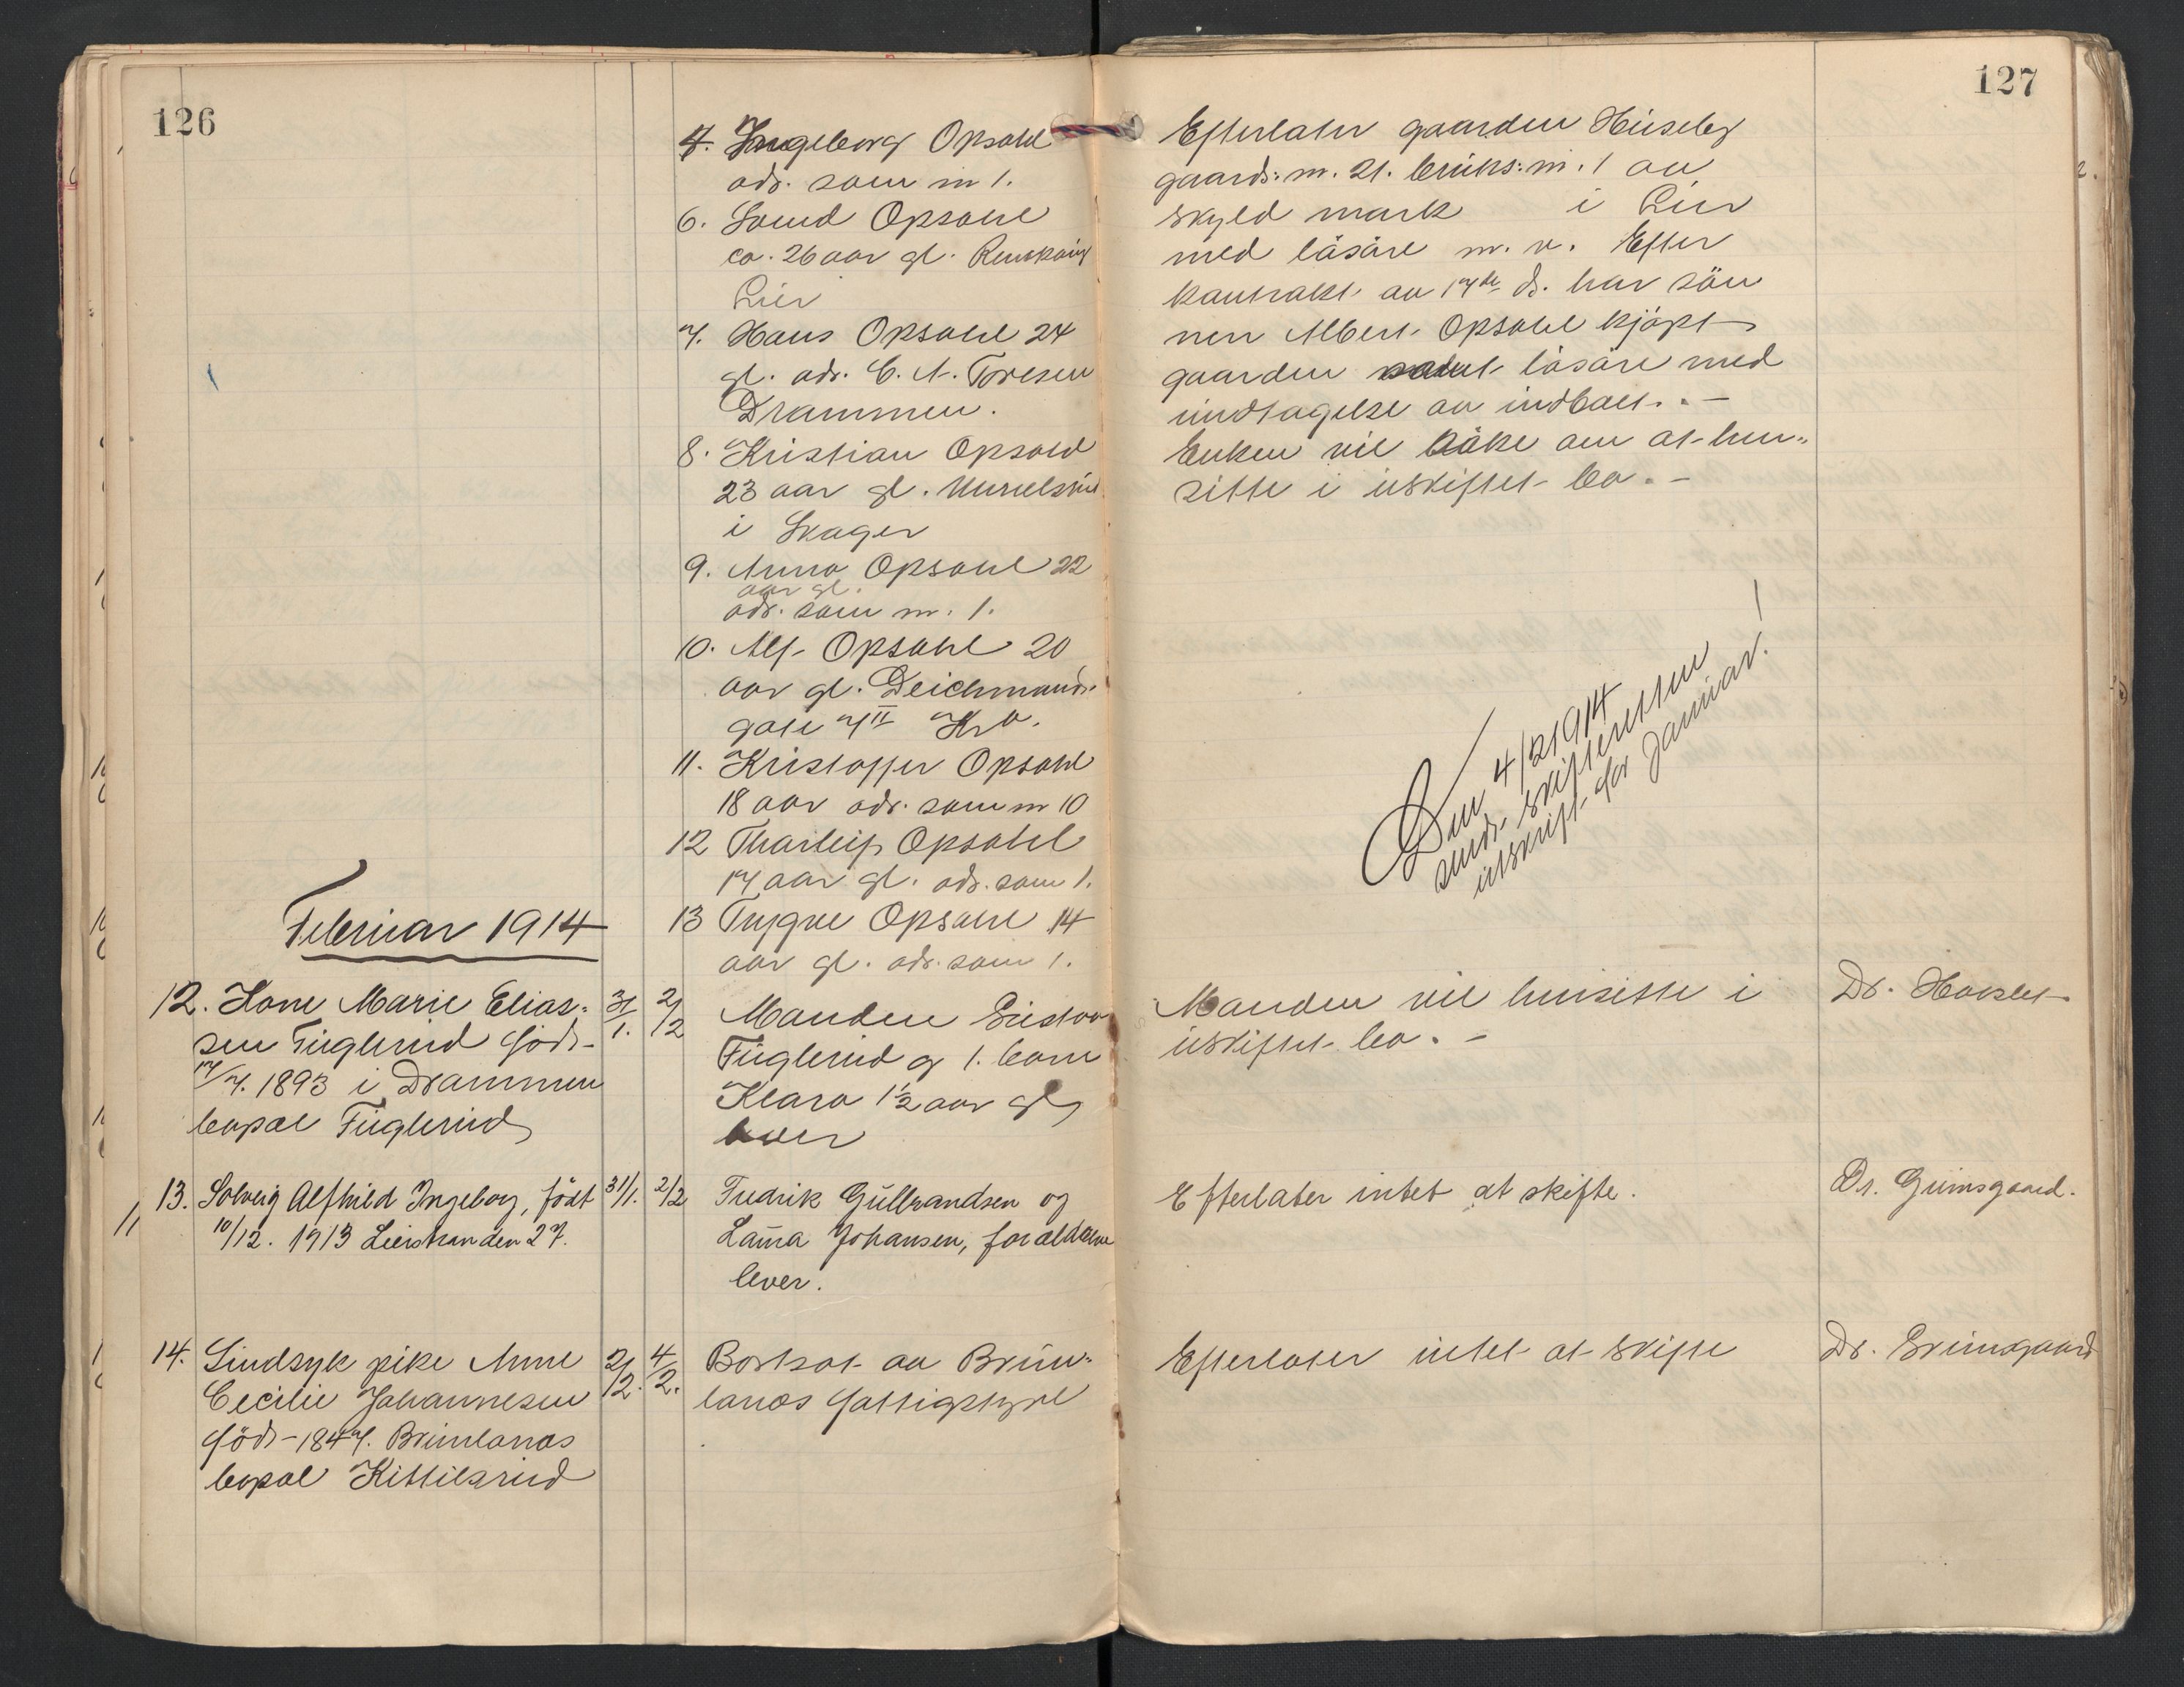 126
Ingeborg Opsahl
adr. som nr 1.
6. Opsahl
ca. 26 aar gl.
Lier
7. Hans Opsahl 24
gl. adr. C. A. Toresen
Drammen.
8. Kristian Opsahl
23 aar gl.
i Skoger
9. Anna Opsahl 22
aar gl.
adr. som nr. 1.
10. Alf Opsahl 20
aar gl. Deichmands
gate 7 II Kra.
11. Kristoffer Opsahl
18 aar adr. som nr 10
12 Thorleif Opsahl
17 aar gl. adr. som 1.
13 Trygve Opsahl 14
aar gl. adr. som 1.
Februar 1914
12. Kone Marie Elias-
sen Fuglerud född
17/7. 1893 i Drammen
bopæl Fuglerud
31/1. 2/2
Manden Gustav
Fuglerud og 1. barn
Klara 1½ aar gl
lever
13. Solveig Alfhild Ingeborg, født
10/12. 1913 Lierstranden 27.
31/1. 2/2
Fredrik Gulbrandsen og
Laura Johansen, forældrene
lever.
14. Sindsyk pike Anne
Cecilie Johannesen
född 1847. Brunlanæs
bopæl Kittilsrud
2/2. 4/2.
Bortsat av Brun-
lanæs fattigstyre
127
Efterlater gaarden Huseby
gaards: nr. 21. bruks: nr. 1 av
skyld mark i Lier
med lösöre m. v. Efter
kontrakt av 17de ds. har sön
nen Albert Opsahl kjöpt
gaarden samt lösöre med
undtagelse av indbo. . –
Enken vil söke om at hen-
sitte i uskiftet bo. –
Den 4/2 1914
sendt skifteretten
utskrift for Januar. !
Manden vil hensitte i
uskiftet bo. –
Dr. Horslet
Efterlater intet at skifte.
Dr. Grimsgaard.
Efterlater intet at skifte
Dr. Grimsgaard